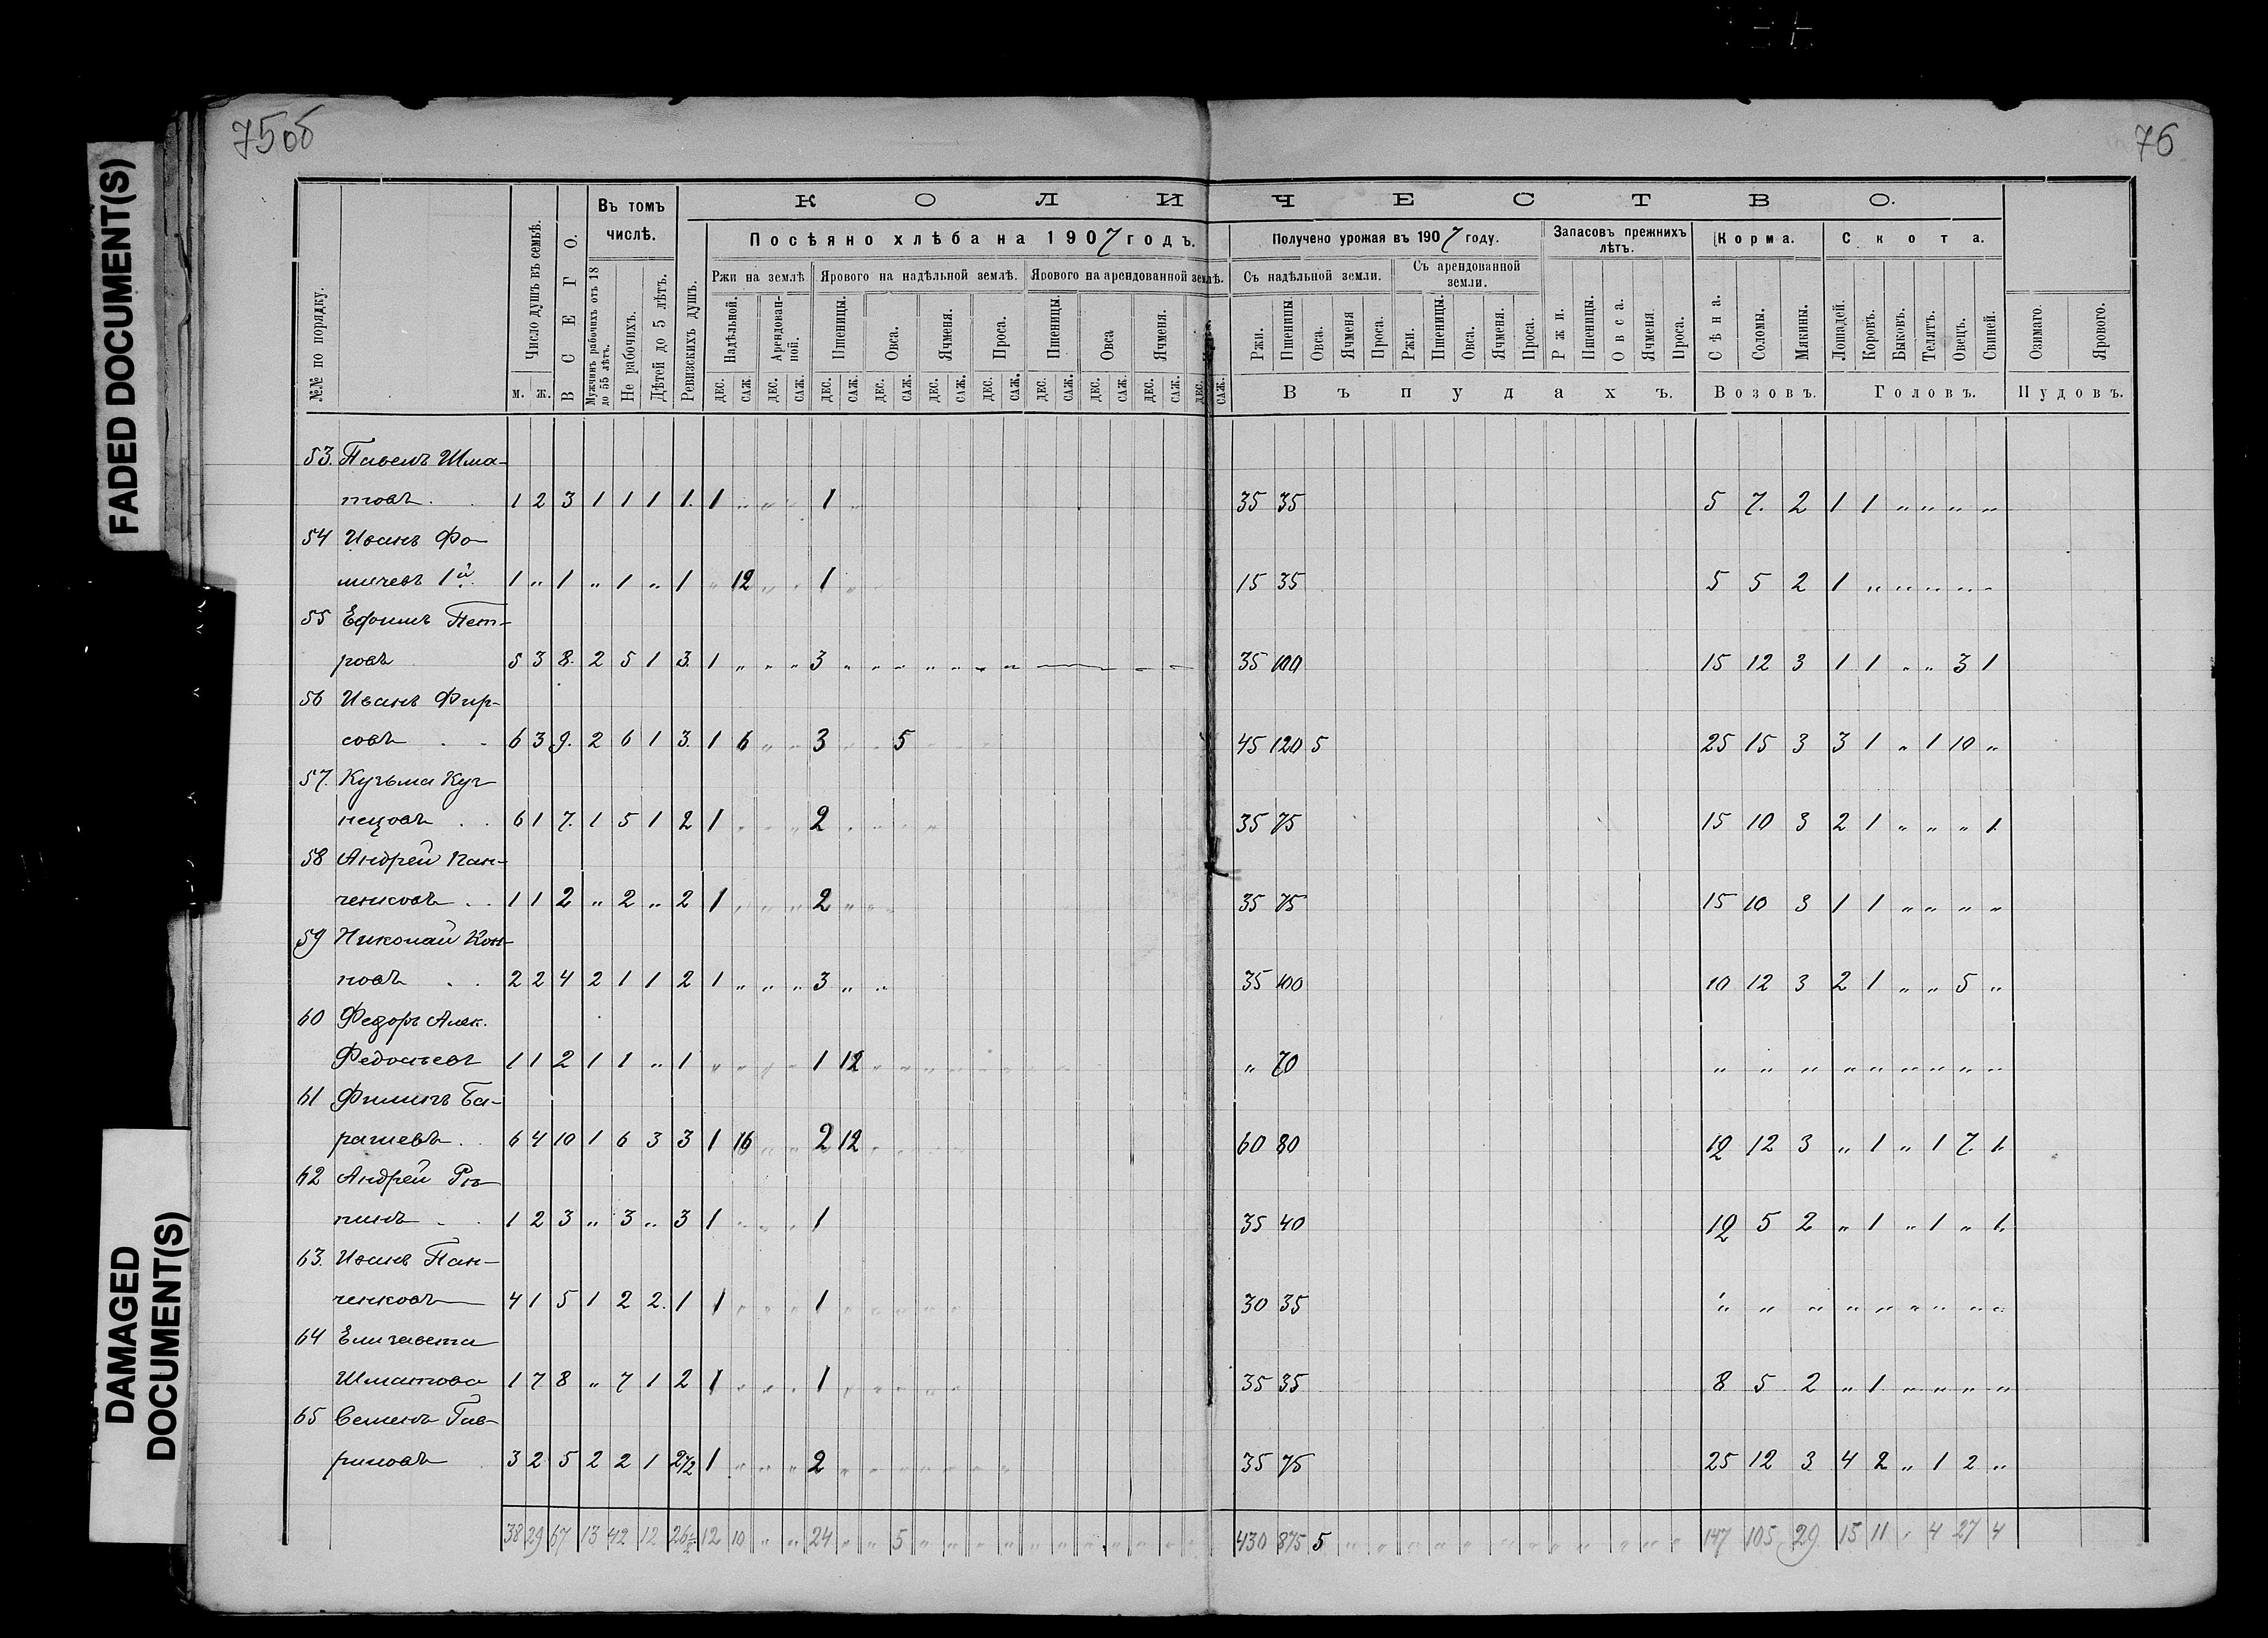 75об
76
FADED DOCUMENT(S)
DAMAGED DOCUMENT(S)
К О Л И Ч Е С Т В О.
№№ по порядку.
Число душъ въ семьѣ.
м. ж.
В С Е Г О.
Въ томъ числѣ.
Мужчинъ рабочихъ отъ 18 до 55 лѣтъ.
Не рабочихъ.
Дѣтей до 5 лѣтъ.
Ревизскихъ душъ.
Посѣяно хлѣба на 1907 годъ.
Ржи на землѣ
Надѣльной.
Арендованной.
Ярового на надѣльной землѣ.
Пшеницы. Овса. Ячменя. Проса.
Ярового на арендованной землѣ.
Пшеницы. Овса Ячменя.
дес. саж. дес. саж. дес. саж. дес. саж. дес. саж. дес. саж. дес. саж. дес. саж. дес. саж. дес. саж.
Получено урожая въ 1907 году.
Съ надѣльной земли.
Ржи. Пшеницы Овса. Ячменя Проса.
Съ арендованной земли.
Ржи. Пшеницы. Овса. Ячменя. Проса.
Запасовъ прежнихъ лѣтъ.
Ржи. Пшеницы. Овса. Ячменя. Проса.
Въ пудахъ.
Корма.
Сѣна. Соломы. Мякины.
Возовъ.
Скота.
Лошадей. Коровъ. Быковъ. Телятъ. Овецъ. Свиней.
Головъ.
Озимаго. Ярового.
Пудовъ.
53. Павелъ Шма-
товъ. 1 2 3 1 1 1 1. 1 „ „ „ 1 „ 35 35 5 7. 2 1 1 „ „ „ „
54 Иванъ Фо-
мичевъ 1й. 1 „ 1 „ 1 „ 1 „ 12 „ „ 1 „ 15 35 5 5 2 1 „ „ „ „ „
55 Ефимъ Пет-
ровъ 5 3 8. 2 5 1 3. 1 „ „ „ 3 „ „ „ „ „ 35 100 15 12 3 1 1 „ „ 3 1
56 Иванъ Фир-
совъ 6 3 9. 2 6 1 3. 1 6 „ „ 3 „ „ 5 45 120 5 25 15 3 3 1 „ 1 10 „
57. Кузьма Куз-
нецовъ 6 1 7. 1 5 1 2 1 „ „ „ 2 „ „ „ „ 35 75 15 10 3 2 1 „ „ „ 1.
58 Андрей Пан-
ченковъ 1 1 2 „ 2 „ 2 1 „ „ „ 2 „ „ „ 35 75 15 10 3 1 1 „ „ „ „
59 Николай Кон-
новъ 2 2 4 2 1 1 2 1 „ „ „ 3 „ „ 35 100 10 12 3 2 1 „ „ 5 „
60 Федоръ Алек.
Федосѣевъ 1 1 2 1 1 „ 1 „ „ „ „ 1 12 „ „ „ „ „ 70 „ „ „ „ „ „ „ „ „
61 Филипъ Ба-
рашевъ. 6 4 10 1 6 3 3 1 16 „ „ 2 12 60 80 12 12 3 „ 1 „ 1 7. 1.
62 Андрей Рѣ-
пинъ 1 2 3 „ 3 „ 3 1 „ „ „ 1 35 40 12 5 2 „ 1 „ 1 „ 1.
63. Иванъ Пан-
ченковъ 4 1 5 1 2 2. 1 1 „ „ „ 1 „ „ „ „ 30 35 „ „ „ „ „ „ „ „ „
64 Елизавета
Шматова 1 7 8 „ 7 1 2 1 „ „ „ 1 „ „ „ „ „ 35 35 8 5 2 „ 1 „ „ „ „
65 Семенъ Гав-
риловъ 3 2 5 2 2 1 2½ 1 „ „ „ 2 „ „ „ „ „ 35 75 25 12 3 4 2 „ 1 2 „
38 29 67 13 42 12 26½ 12 10 „ „ 24 „ „ 5 „ „ „ „ „ 430 875 5 „ „ „ „ 147 105 29 15 11 „ 4 27 4